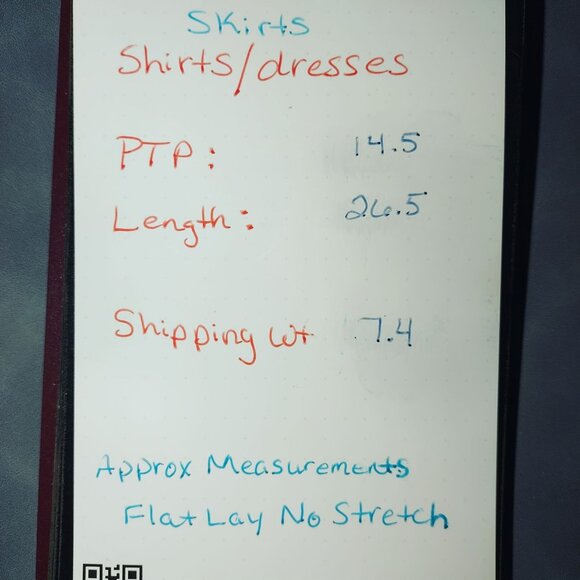 Skirts
Shirts/dresses
PTP: 14.5
Length: 26.5
Shipping wt 7.4
Approx Measurements
Flat Lay No Stretch